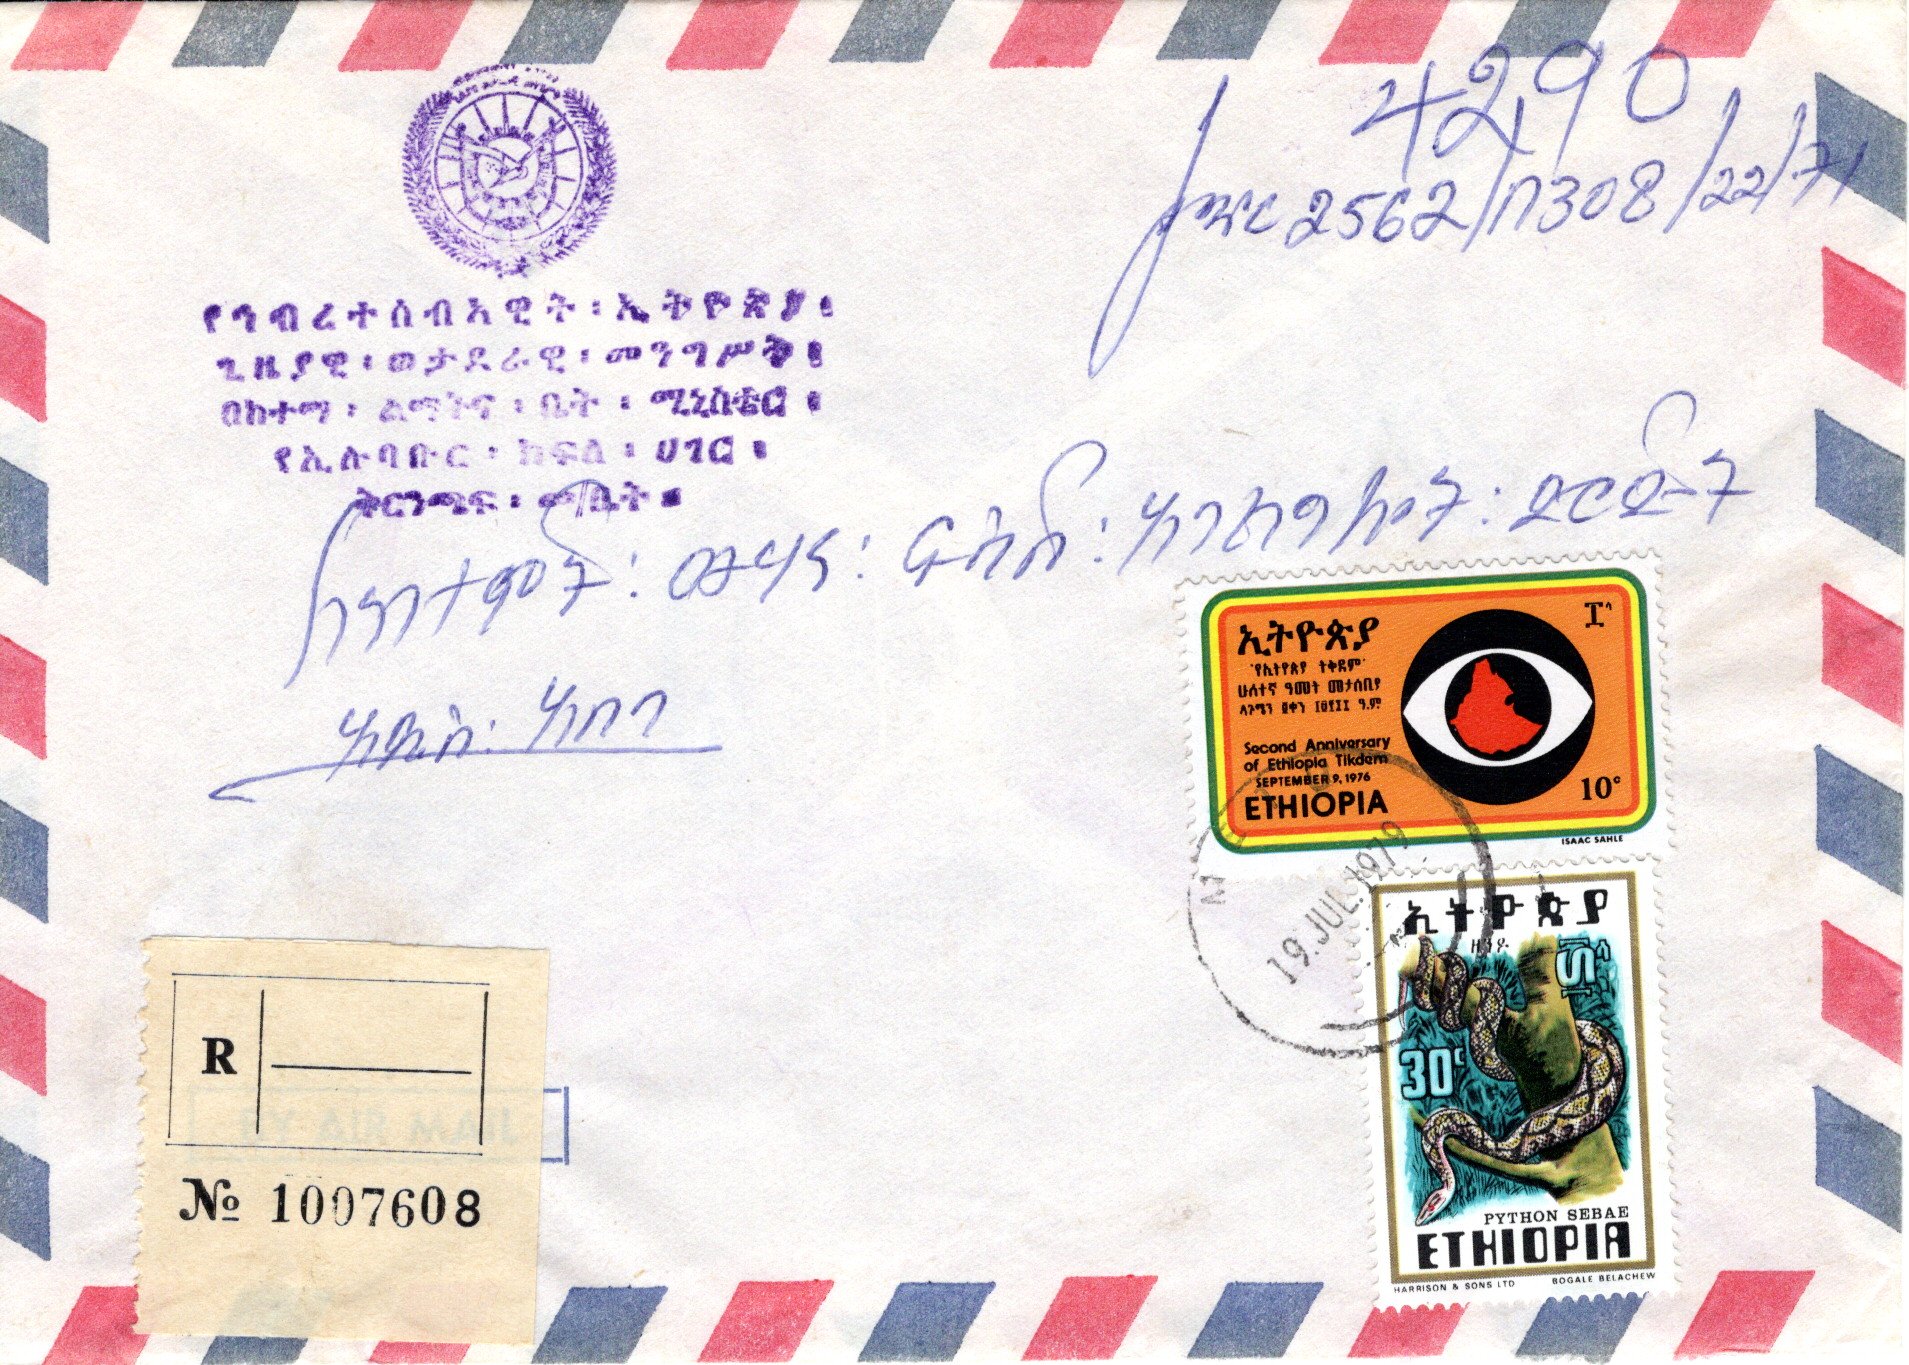 4290
2562/በ308/22/71
የኅብረተሰብአዊት፡ኢትዮጵያ፡
ጊዜያዊ፡ወታደራዊ፡መንግሥት፡
በከተማ፡ልማትና፡ቤት፡ሚኒስቴር፡
የኢሉባቡር፡ክፍለ፡ሀገር፡
ቅርንጫፍ፡መ/ቤት።
ለከተሞች፡ውሃና፡ፍሳሽ፡አገልግሎት፡ድርጅት
አዲስ፡አበባ
ኢትዮጵያ
፲ሳ
"የኢትዮጵያ ትቅደም"
ሁለተኛ ዓመት መታሰቢያ
Second Anniversary
of Ethiopia Tikdem
SEPTEMBER 9, 1976
ETHIOPIA
10c
ISAAC SAHLE
19.JUL.1979
ኢትዮጵያ
ዘንዶ
30c
PYTHON SEBAE
ETHIOPIA
HARRISON & SONS LTD BOGALE BELACHEW
R
BY AIR MAIL
№ 1007608